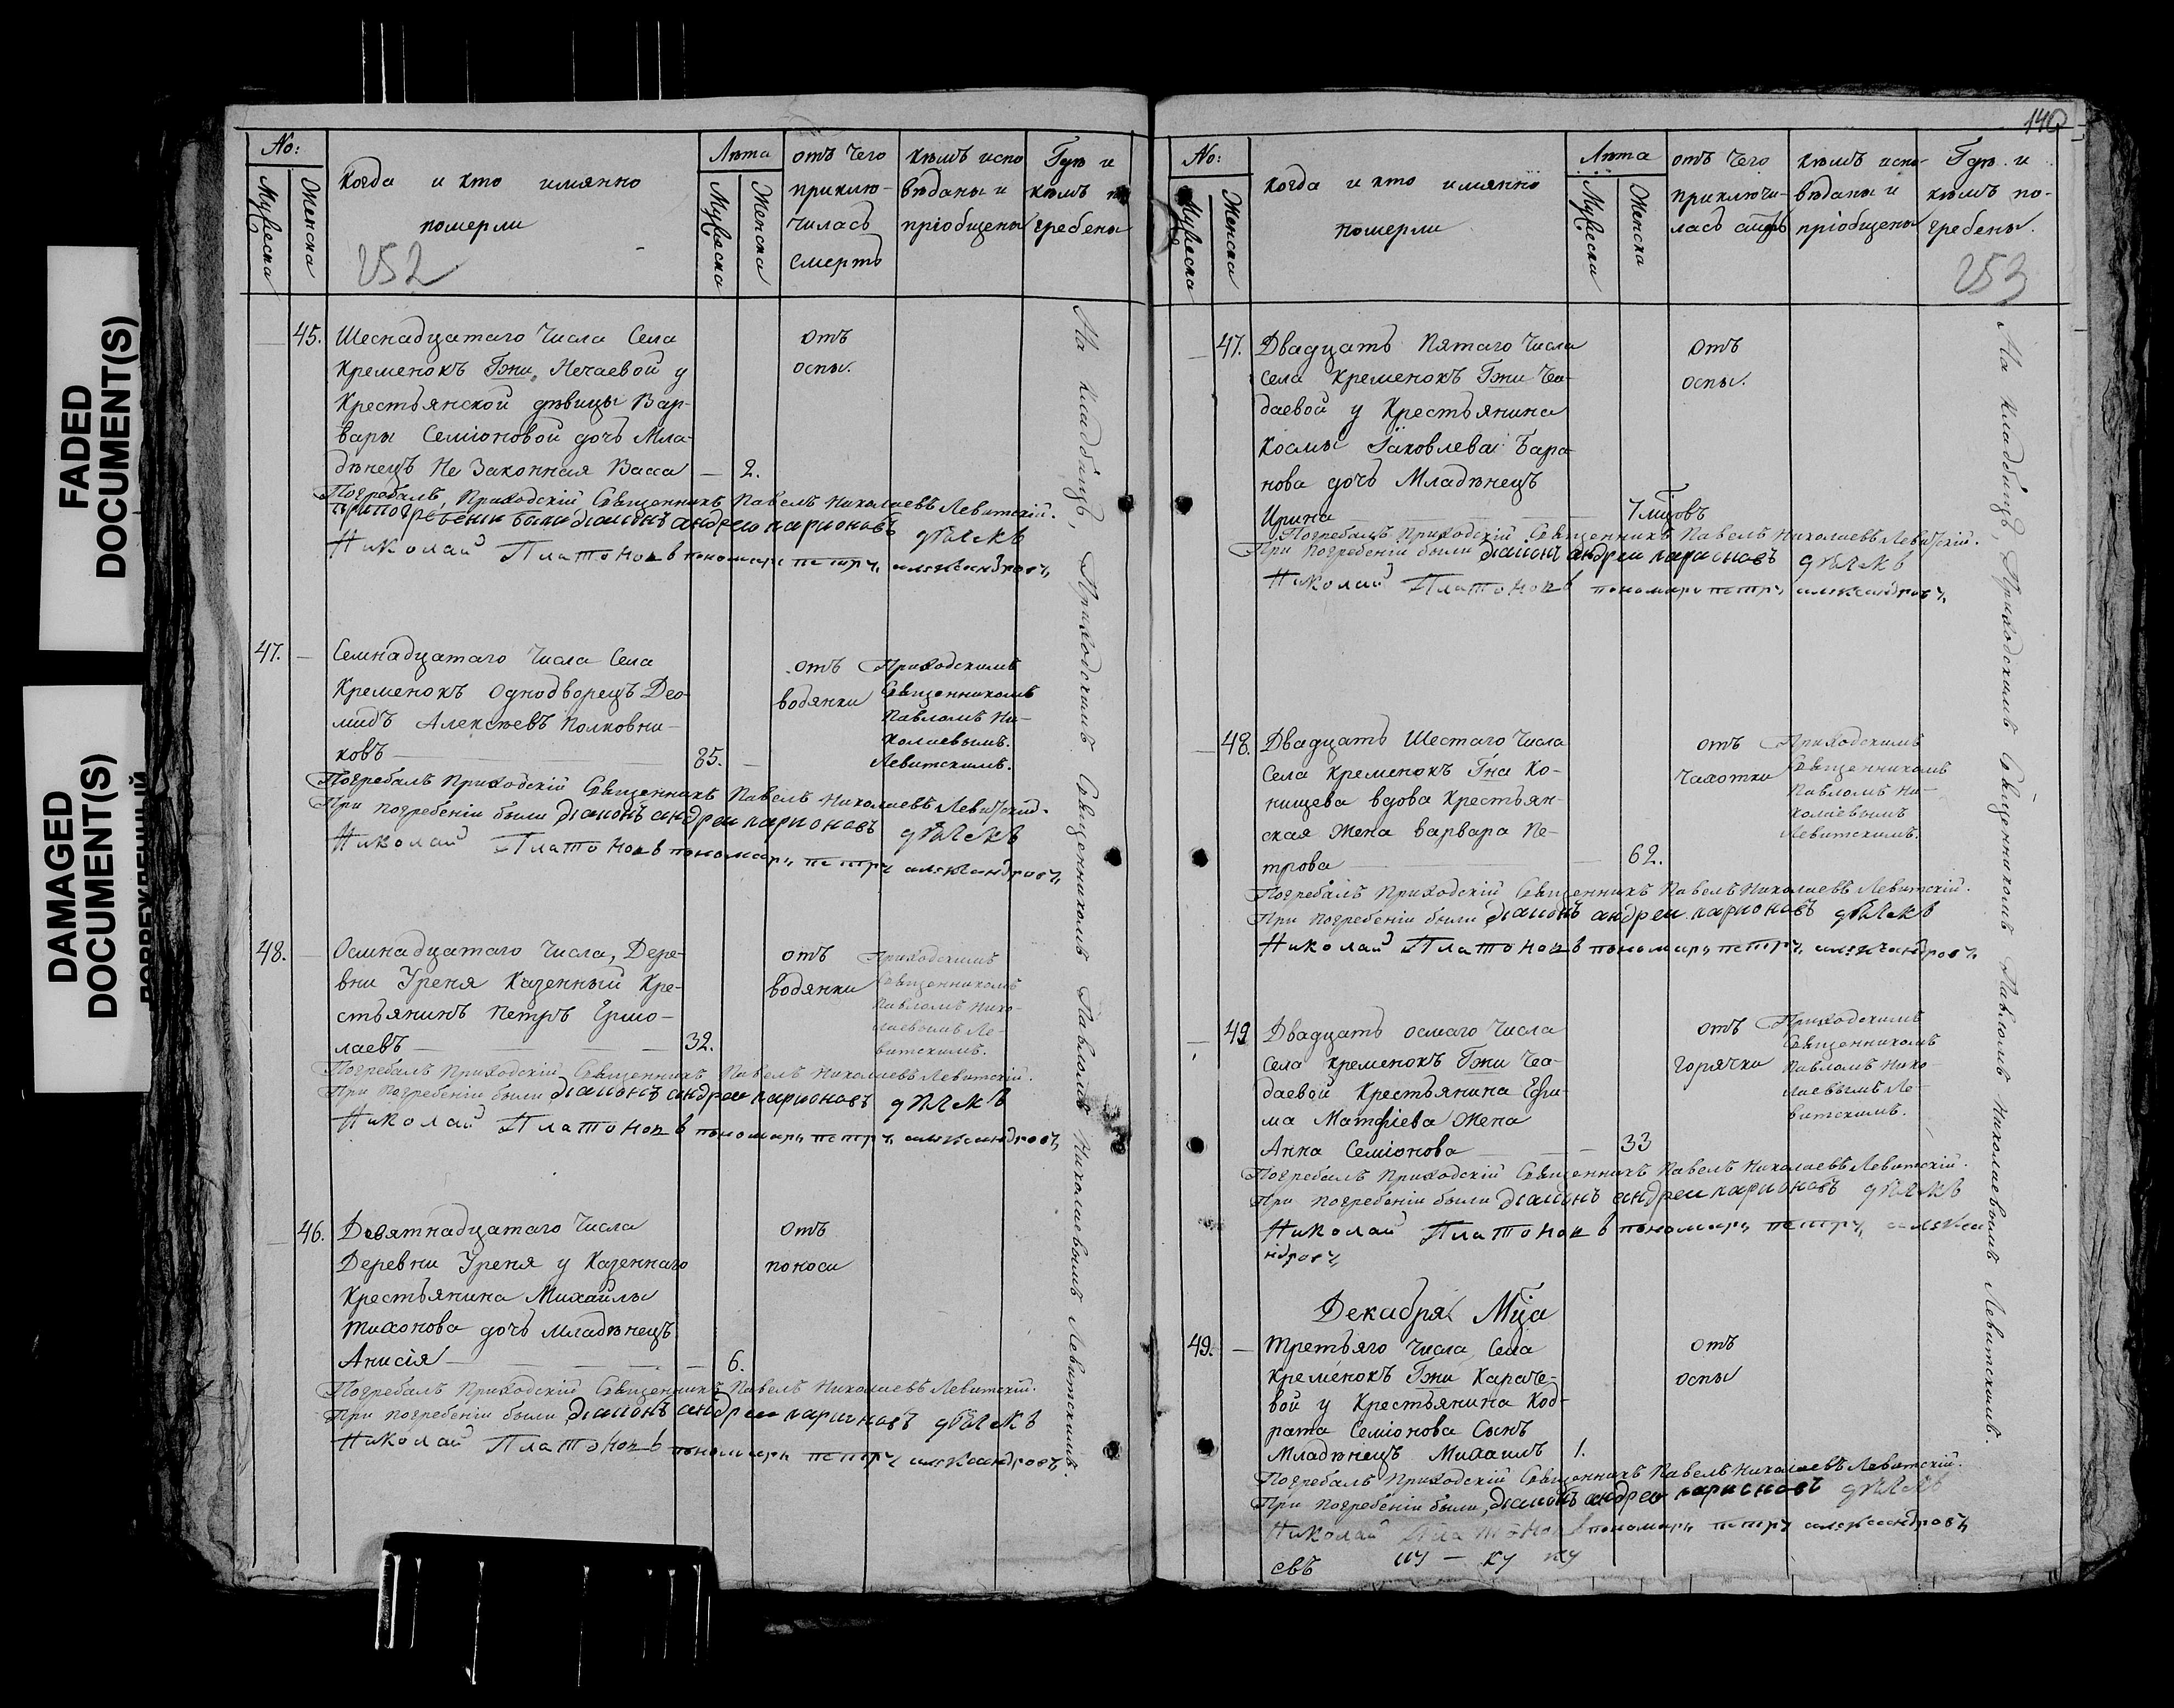 FADED
DOCUMENT(S)
DAMAGED
DOCUMENT(S)
No:
Мужеска
Женска
когда и кто имянно
померли
252
Лѣта
Мужеска
Женска
отъ чего
приклю-
чилась
смерть
кѣмъ испо
вѣданы и
пріобщены
Гдѣ и
кѣмъ по
гребены
45. Шеснадцатаго числа Села
Кременокъ Гжи Нечаевой у
Крестьянской дѣвицы Вар-
вары Семіоновой дочь Мла-
дѣнецъ Не Законная Васса — 2.
отъ
оспы.
Погребалъ Приходскій Священникъ Павелъ Николаевъ Левитскій.
При погребеніи были діаконъ андреи ларионовъ дьячкъ
Николай Платоновъ пономарь петръ александровъ
47. — Семнадцатаго числа Села
Кременокъ Однодворецъ Део-
мидъ Алексѣевъ Полковни-
ковъ — 85. —
отъ
водянки
Приходскимъ
Священникомъ
Павломъ Ни-
колаевымъ
Левитскимъ.
Погребалъ Приходскій Священникъ Павелъ Николаевъ Левитскій.
При погребеніи были діаконъ андреи ларионовъ дьячкъ
Николай Платоновъ пономарь петръ александровъ
48. — Осмнадцатаго числа, Дере-
вни Уреня Казенный Кре-
стьянинъ Петръ Ермо-
лаевъ — 32.
отъ
водянки
Приходскимъ
Священникомъ
Павломъ Нико-
лаевымъ Ле-
витскимъ.
Погребалъ Приходскій Священникъ Павелъ Николаевъ Левитскій.
При погребеніи были діаконъ андреи ларионовъ дьячкъ
Николай Платоновъ пономарь петръ александровъ
46. Девятнадцатаго числа
Деревни Уреня у Казеннаго
Крестьянина Михайлы
тихонова дочь младѣнецъ
Анисія — 6.
отъ
поноса
Погребалъ Приходскій Священникъ Павелъ Николаевъ Левитскій.
При погребеніи были діаконъ андреи ларионовъ дьячкъ
Николай Платоновъ пономарь петръ александровъ
На кладбищѣ, Приходскимъ Священникомъ Павломъ Николаевымъ Левитскимъ.
140
No:
Мужеска
Женска
когда и кто имянно
померли
Лѣта
Мужески
Женска
отъ чего
приключи-
лась смерть
кѣмъ испо-
вѣданы и
пріобщены
Гдѣ и
кѣмъ по-
гребены.
253
— 47. Двадцать Пятаго числа
села Кременокъ Гжи Чеа-
даевой у Крестьянина
Космы Іаковлева Бара-
нова дочь Младѣнецъ
Ирина — 7 мцовъ
отъ
оспы.
Погребалъ Приходскій Священникъ Павелъ Николаевъ Левитскій.
При погребеніи были діаконъ андреи ларионовъ дьячкъ
Николай Платоновъ пономарь петръ александровъ
— 48. Двадцать Шестаго числа
Села Кременокъ Гна Ко-
нищева вдова Крестьян-
ская Жена варвара Пе-
трова — 62.
отъ
чахотки
Приходскимъ
Священникомъ
Павломъ Ни-
колаевымъ
Левитскимъ.
Погребалъ Приходскій Священникъ Павелъ Николаевъ Левитскій.
При погребеніи были діаконъ андреи ларионовъ дьячкъ
Николай Платоновъ пономарь петръ александровъ
— 49 Двадцать осмаго числа
Села Кременокъ Гжи Чеа-
даевой Крестьянина Ефи-
ма Матфіева Жена
Анна Семіонова — 33
отъ
горячки
Приходскимъ
Священникомъ
Павломъ Нико-
лаевымъ Ле-
витскимъ.
Погребалъ Приходскій Священникъ Павелъ Николаевъ Левитскій.
При погребеніи были діаконъ андреи ларионовъ дьячкъ
Николай Платоновъ пономарь петръ алекса
ндровъ
Декабря Мца
49. — Третьяго числа Села
Кременокъ Гжи Караче-
вой у Крестьянина Код-
рата Семіонова Сынъ
Младѣнецъ Михаилъ 1.
отъ
оспы
Погребалъ Приходскій Священникъ Павелъ Николаевъ Левитскій.
При погребеніи были, діаконъ андреи ларионовъ дьячкъ
Николай Платоновъ пономарь петръ александровъ
На кладбищѣ, Приходскимъ Священникомъ Павломъ Николаевымъ Левитскимъ.